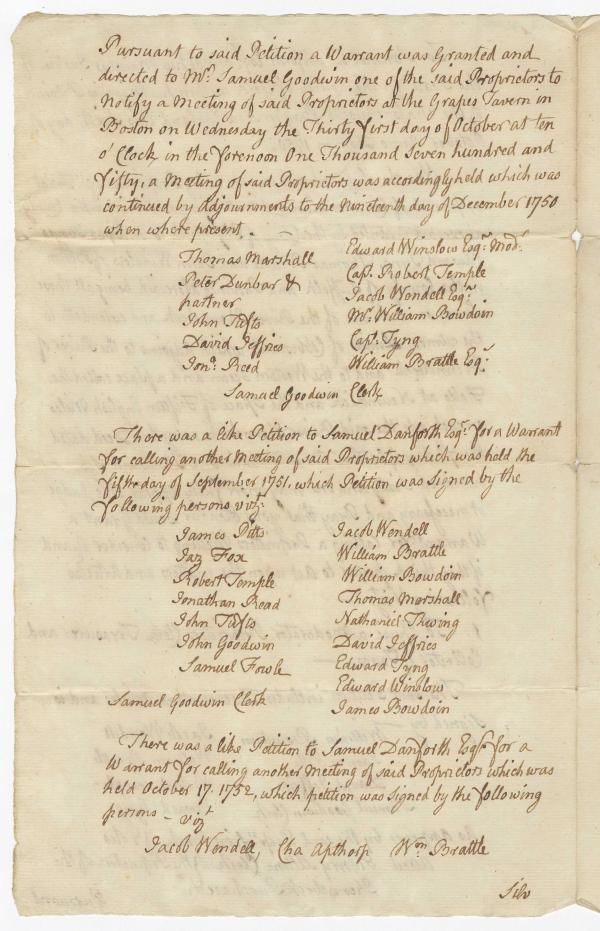 Pursuant to said Petition a Warrant was Granted and
directed to Mr. Samuel Goodwin one of the said Proprietors to
Notify a Meeting of said Proprietors at the Grapes Tavern in
Boston on Wednesday the Thirty first day of October at ten
o' Clock in the forenoon One Thousand Seven hundred and
fifty, a Meeting of said Proprietors was accordingly held which was
continued by Adjournments to the Nineteenth day of December 1750
when where present. —
Thomas Marshall
Peter Dunbar &
partner
John Tufts
David Jeffries
Jona. Reed
Edward Winslow Esqr. Modr.
Capt. Robert Temple
Jacob Wendell Esqr.
Mr. William Bowdoin
Capt. Tyng
William Brattle Esqr.
Samuel Goodwin Clerk
There was a like Petition to Samuel Danforth Esqr. for a Warrant
for calling another Meeting of said Proprietors which was held the
fifth day of September 1751, which Petition was signed by the
following persons vizt.
James Pitts
Jaz Fox
Robert Temple
Jonathan Read
John Tufts
John Goodwin
Samuel Fowle
Jacob Wendell
William Brattle
William Bowdoin
Thomas Marshall
Nathaniel Thwing
David Jeffries
Edward Tyng
Edward Winslow
James Bowdoin
Samuel Goodwin Clerk
There was a like Petition to Samuel Danforth Esqr. for a
Warrant for calling another Meeting of said Proprietors which was
held October 17. 1752, which petition was signed by the following
persons – vizt
Jacob Wendell, Cha Apthorp Wm Brattle
Silv